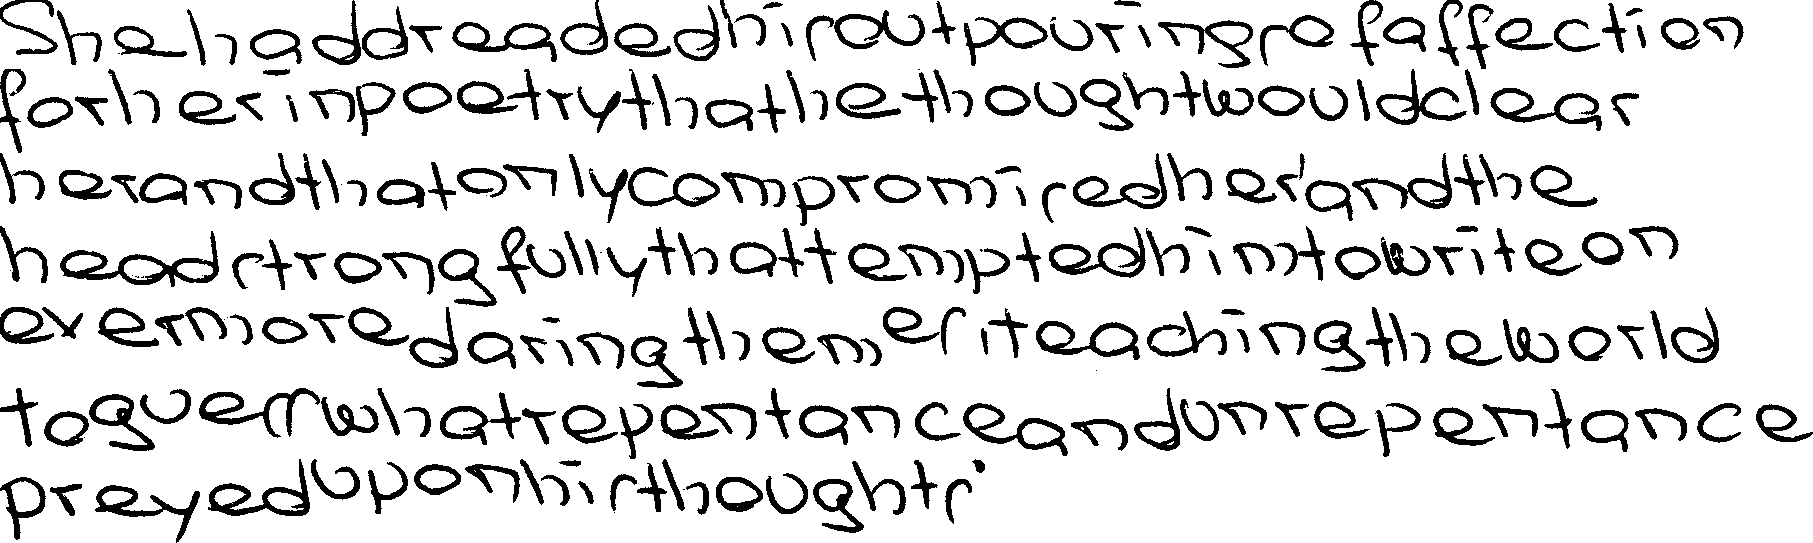 She had dreaded his outpourings of affection
for her in poetry that he thought would clear
her and that only compromised her, and the
headstrong fully that tempted him to write on
ever more daring themes, teaching the world
to guess what repentance and unrepentance
preyed upon his thoughts.